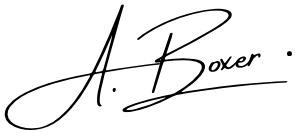 A. Boxer.